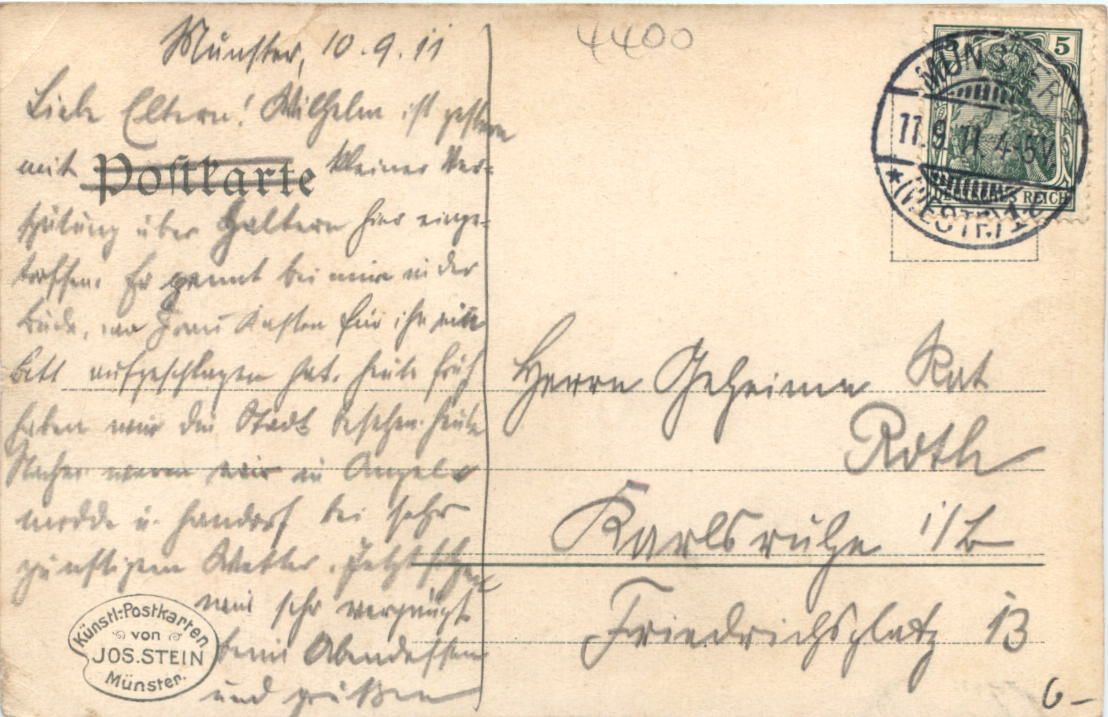 Münster, 10.9.11
Liebe Eltern! Wilhelm ist gestern
mit kleiner Ver-
spätung über Haltern hier einge-
troffen. Er pennt bei mir in der
Bude, wo Frau Kasten für ihn ein
Bett aufgeschlagen hat. Heute früh
haben wir die Stadt besehen. Heute
Nachm. waren wir in Angel-
modde u. Handorf bei sehr
günstigem Wetter. Jetzt sitzen
wir sehr vergnügt
beim Abendessen
und grüßen
Postkarte
Künstl:Postkarten
von
JOS.STEIN
Münster.
4400
5
DEUTSCHES REICH
MÜNSTER
11.9.11 4-5N
*(WESTF.)1
Herrn Geheimen Rat
Roth
Karlsruhe i/B
Friedrichsplatz 13
6-